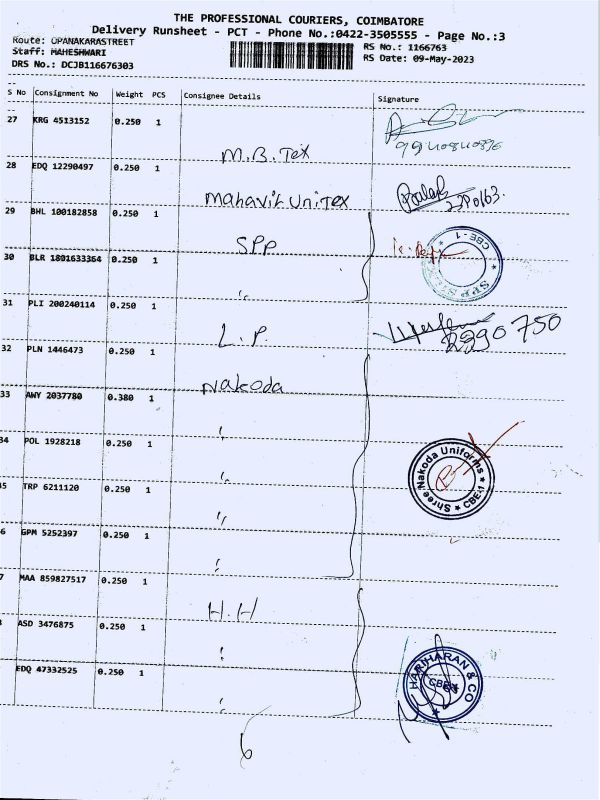 THE PROFESSIONAL COURIERS, COIMBATORE
Delivery Runsheet - PCT - Phone No.:0422-3505555 - Page No.:3
Route: OPANAKARASTREET
RS No.: 1166763
Staff: MAHESHWARI
RS Date: 09-May-2023
DRS No.: DCJB116676303
S No Consignment No Weight PCS Consignee Details Signature
27 KRG 4513152 0.250 1
M.B.Tex
28 EDQ 12290497 0.250 1
Mahavir UniTex
29 BHL 100182858 0.250 1
SPP
CBE-1
SPP
30 BLR 1801633364 0.250 1
31 PLI 200240114 0.250 1
L.P.
2290750
32 PLN 1446473 0.250 1
Nakoda
33 AWY 2037780 0.380 1
34 POL 1928218 0.250 1
Shree Nakoda Uniforms
CBE-1
5 TRP 6211120 0.250 1
6 GPM 5252397 0.250 1
7 MAA 859827517 0.250 1
H.H
ASD 3476875 0.250 1
HARIHARAN & CO
CBE-1
EDQ 47332525 0.250 1
6